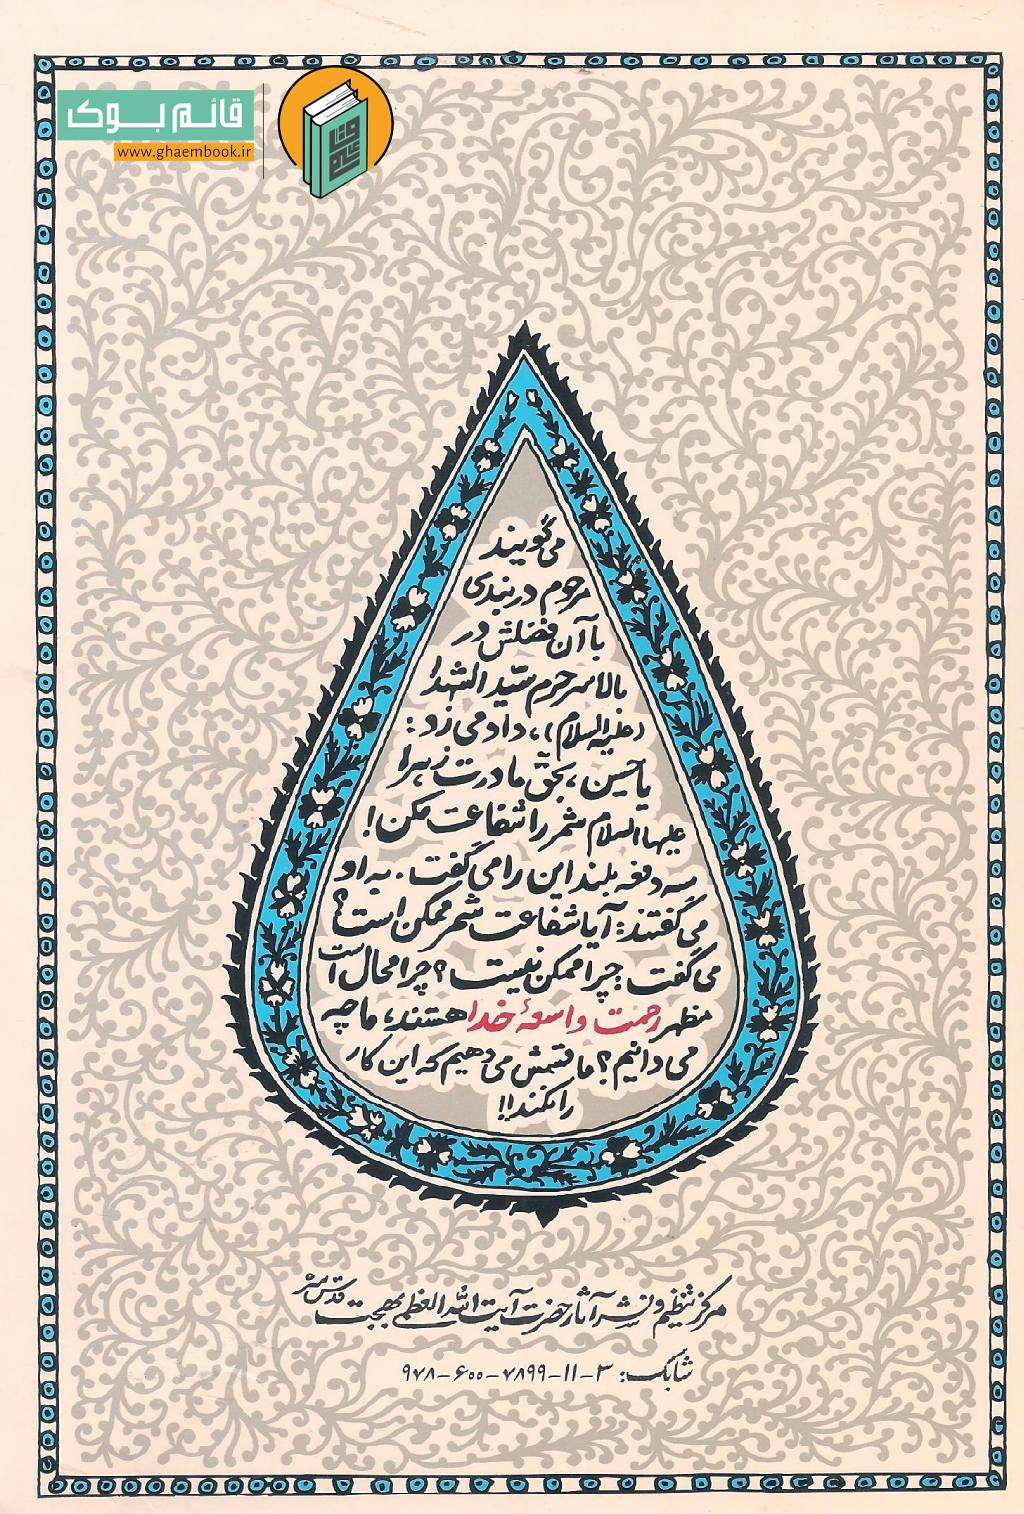 قائم بوک
www.ghaembook.ir
می‌گویند
مرحوم دربندی
با آن فضلش در
بالاسر حرم سیّد الشهدا
(علیه السلام)، داد می‌زد:
یا حسین، بحقّ مادرت زهرا
علیها السلام شمر را شفاعت مکن!
سه دفعه بلند این را می‌گفت. به او
می‌گفتند: آیا شفاعت شمر ممکن است؟
می‌گفت: چرا ممکن نیست؟ چرا محال است
مظهر رحمت واسعهٔ خدا هستند، ما چه
می‌دانیم؟ ما قسمش می‌دهیم که این کار
را نکند!!
مرکز تنظیم و نشر آثار حضرت آیت الله العظمی بهجت قدّس سره
شابک: ۳-۱۱-۷۸۹۹-۶۰۰-۹۷۸